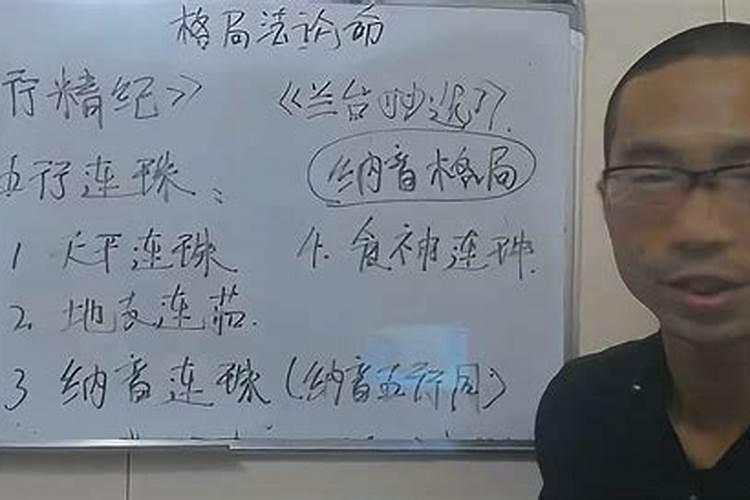 格局法论命
行精纪》 《兰台妙选》
五行连珠： 纳音格局
1 天干连珠 4. 食神连珠
2. 地支连茹
3 纳音连珠(纳音五行同)